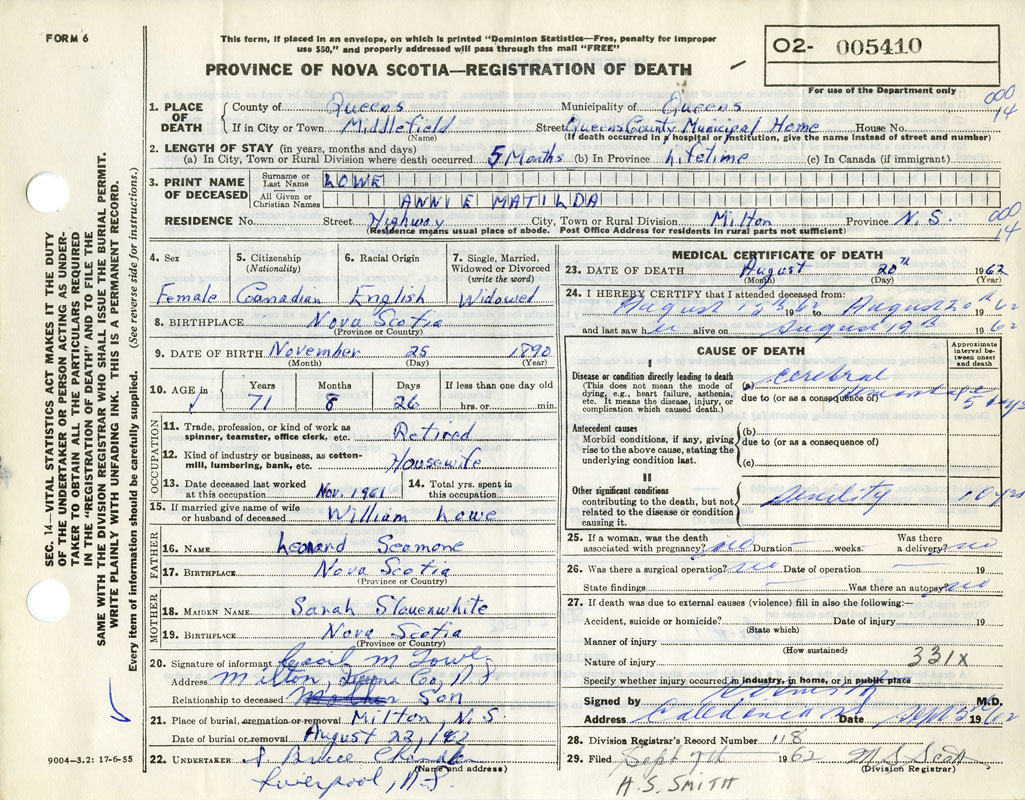 FORM 6
This form, if placed in an envelope, on which is printed "Dominion Statistics—Free, penalty for improper
use $50," and properly addressed will pass through the mail "FREE"
PROVINCE OF NOVA SCOTIA—REGISTRATION OF DEATH
02- 005410
For use of the Department only
000
14
1. PLACE OF DEATH
County of Queens Municipality of Queens
If in City or Town Middlefield Street Queens County Municipal Home House No.
(Name) (If death occurred in a hospital or institution, give the name instead of street and number)
2. LENGTH OF STAY (in years, months and days)
(a) In City, Town or Rural Division where death occurred 5 Months (b) In Province Lifetime (c) In Canada (if immigrant)
3. PRINT NAME OF DECEASED
Surname or Last Name LOWE
All Given or Christian Names ANNIE MATILDA
RESIDENCE No. Street Highway City, Town or Rural Division Milton Province N.S.
(Residence means usual place of abode. Post Office Address for residents in rural parts not sufficient)
000
14
4. Sex Female
5. Citizenship (Nationality) Canadian
6. Racial Origin English
7. Single, Married, Widowed or Divorced (write the word) Widowed
8. BIRTHPLACE Nova Scotia
(Province or Country)
9. DATE OF BIRTH November 25 1890
(Month) (Day) (Year)
10. AGE in Years Months Days If less than one day old
71 8 26 hrs. or min.
OCCUPATION
11. Trade, profession, or kind of work as spinner, teamster, office clerk, etc. Retired
12. Kind of industry or business, as cotton-mill, lumbering, bank, etc. Housewife
13. Date deceased last worked at this occupation Nov. 1961 14. Total yrs. spent in this occupation
15. If married give name of wife or husband of deceased William Lowe
FATHER
16. NAME Leonard Seamone
17. BIRTHPLACE Nova Scotia
(Province or Country)
MOTHER
18. MAIDEN NAME Sarah Slauenwhite
19. BIRTHPLACE Nova Scotia
(Province or Country)
20. Signature of informant Cecil M Lowe
Address Milton, Co, N S
Relationship to deceased Mother Son
21. Place of burial, cremation or removal Milton, N.S.
Date of burial or removal August 22, 1962
22. UNDERTAKER S. Bruce
(Name and address)
Liverpool, N.S.
MEDICAL CERTIFICATE OF DEATH
23. DATE OF DEATH August 20th 1962
(Month) (Day) (Year)
24. I HEREBY CERTIFY that I attended deceased from:
August 15th 1962 to August 20th 1962
and last saw h er alive on August 19th 1962
CAUSE OF DEATH
Approximate interval between onset and death
I
Disease or condition directly leading to death
(This does not mean the mode of dying, e.g., heart failure, asthenia, etc. It means the disease, injury, or complication which caused death.)
(a) Cerebral
due to (or as a consequence of) Hemorrhage 5 days
Antecedent causes
Morbid conditions, if any, giving rise to the above cause, stating the underlying condition last.
(b)
due to (or as a consequence of)
(c)
II
Other significant conditions
contributing to the death, but not related to the disease or condition causing it.
Senility 10 yrs
25. If a woman, was the death associated with pregnancy? no Duration — weeks. Was there a delivery? no
26. Was there a surgical operation? no Date of operation — 19
State findings — Was there an autopsy? no
27. If death was due to external causes (violence) fill in also the following:—
Accident, suicide or homicide? Date of injury 19
(State which)
Manner of injury
(How sustained)
Nature of injury 331x
Specify whether injury occurred in industry, in home, or in public place
Signed by M.D.
Address Caledonia Date Sept 5th 1962
28. Division Registrar's Record Number 118
29. Filed Sept 7th 1962 M S Scott
(Division Registrar)
H.S. SMITH
SEC. 14—VITAL STATISTICS ACT MAKES IT THE DUTY
OF THE UNDERTAKER OR PERSON ACTING AS UNDER-
TAKER TO OBTAIN ALL THE PARTICULARS REQUIRED
IN THE "REGISTRATION OF DEATH" AND TO FILE THE
SAME WITH THE DIVISION REGISTRAR WHO SHALL ISSUE THE BURIAL PERMIT.
WRITE PLAINLY WITH UNFADING INK. THIS IS A PERMANENT RECORD.
Every item of information should be carefully supplied. (See reverse side for instructions.)
9004-3.2: 17-6-55